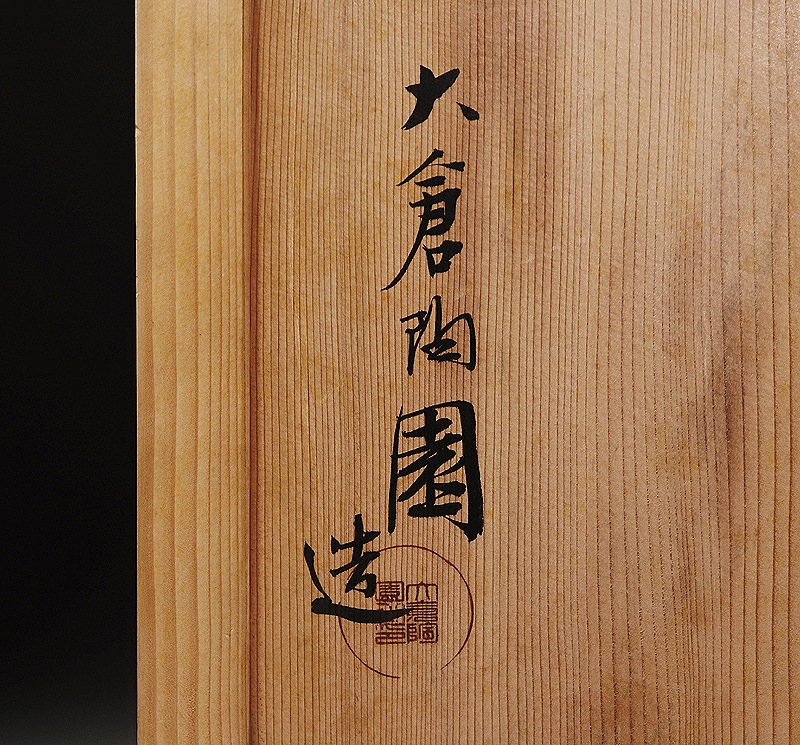 大倉陶園
造
大倉陶
園